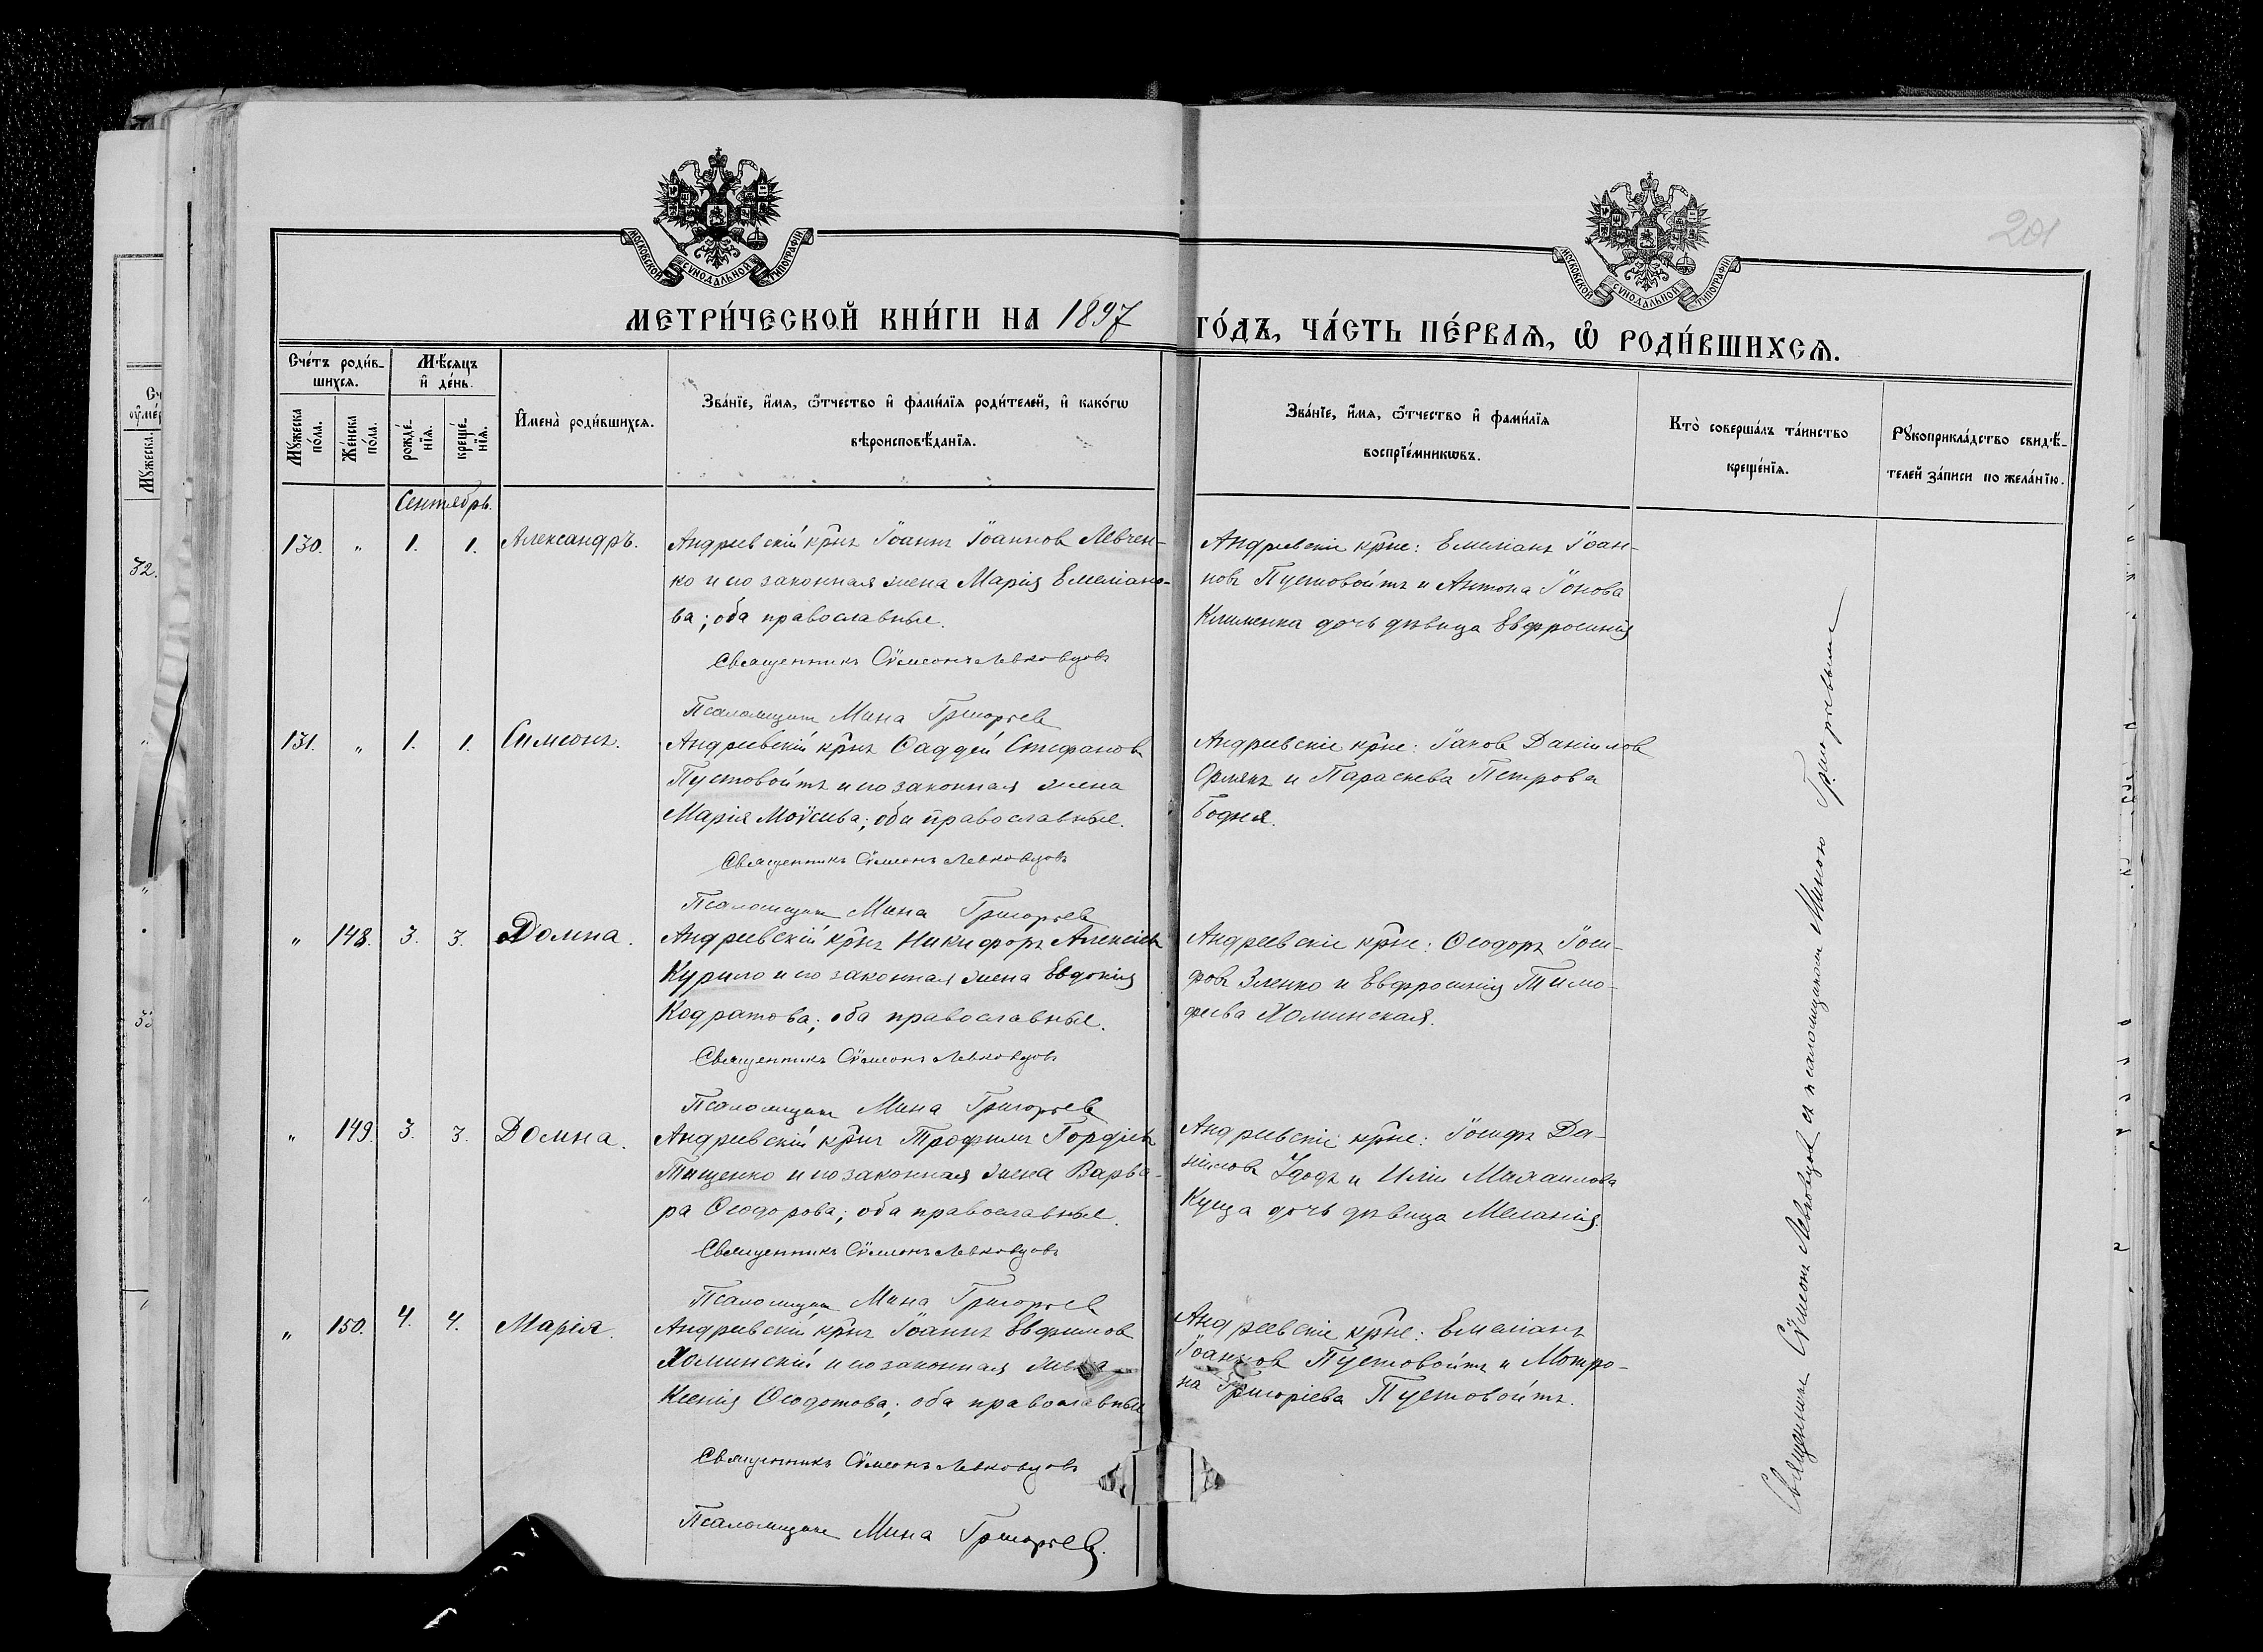 201
МОСКОВСКОЙ СѴНОДАЛЬНОЙ ТИПОГРАФІИ
МОСКОВСКОЙ СѴНОДАЛЬНОЙ ТИПОГРАФІИ
МЕТРИ́ЧЕСКОЙ КНИ́ГИ НА 1897 ГО́ДЪ, ЧА́СТЬ ПЕ́РВАѦ, Ѽ РОДИ́ВШИХСѦ.
Сче́тъ роди́в-
шихсѧ.
Мѣ́сѧцъ
и҆ де́нь.
Мꙋжеска
по́ла.
Же́нска
по́ла.
рожде́-
нїѧ.
креще́-
нїѧ.
И҆мена̀ роди́вшихсѧ.
Зва́нїе, и҆́мѧ, ѻ҆́тчество и҆ фами́лїѧ роди́телей, и҆ како́гѡ
вѣроисповѣ́данїѧ.
Зва́нїе, и҆́мѧ, ѻ҆́тчество и҆ фами́лїѧ
воспрїе́мникѡвъ.
Кто̀ соверша́лъ та́инство
креще́нїѧ.
Рꙋкоприкла́дство свидѣ́-
телей за́писи по жела́нїю.
Сентябрь.
130. " 1. 1. Александръ.
Андреевскій кр̃нъ Іоаннъ Іоанновъ Левчен-
ко и его законная жена Марія Емеліано-
ва; оба православные.
Священникъ Сѷмеонъ Левковцовъ
Псаломщикъ Мина Григорьевъ
Андреевскіе кр̃не: Емеліанъ Іоан-
новъ Пустовойтъ и Антона Іонова
Клименка дочь дѣвица Евфросинія
131. " 1. 1. Симеонъ.
Андреевскій кр̃нъ Ѳаддей Стефановъ
Пустовойтъ и его законная жена
Марія Моѷсеева; оба православные.
Священникъ Сѷмеонъ Левковцовъ
Псаломщикъ Мина Григорьевъ
Андреевскіе кр̃не: Іаковъ Даніиловъ
Орлякъ и Параскева Петрова
Бодня.
" 148. 3. 3. Домна.
Андреевскій кр̃нъ Никифоръ Алексіевъ
Курило и его законная жена Евдокія
Кодратова; оба православные.
Священникъ Сѷмеонъ Левковцовъ
Псаломщикъ Мина Григорьевъ
Андреевскіе кр̃не: Ѳеодоръ Іоси-
фовъ Зленко и Евфросинія Тимо-
феева Хоминская.
" 149. 3. 3. Домна.
Андреевскій кр̃нъ Трофимъ Гордіевъ
Тищенко и его законная жена Варва-
ра Ѳеодорова; оба православные.
Священникъ Сѷмеонъ Левковцовъ
Псаломщикъ Мина Григорьевъ
Андреевскіе кр̃не: Іосифъ Да-
ніиловъ Удодъ и Иліи Михаилова
Куща дочь дѣвица Меланія.
" 150. 4. 4. Марія.
Андреевскій кр̃нъ Іоаннъ Евфимовъ
Хоминскій и его законная жена
Ксенія Ѳеодотова; оба православные
Священникъ Сѷмеонъ Левковцовъ
Псаломщикъ Мина Григорьевъ.
Андреевскіе кр̃не: Емеліанъ
Іоанновъ Пустовойтъ и Мотро-
на Григоріева Пустовойтъ.
Священникъ Сѷмеонъ Левковцовъ съ псаломщикомъ Миною Григорьевымъ